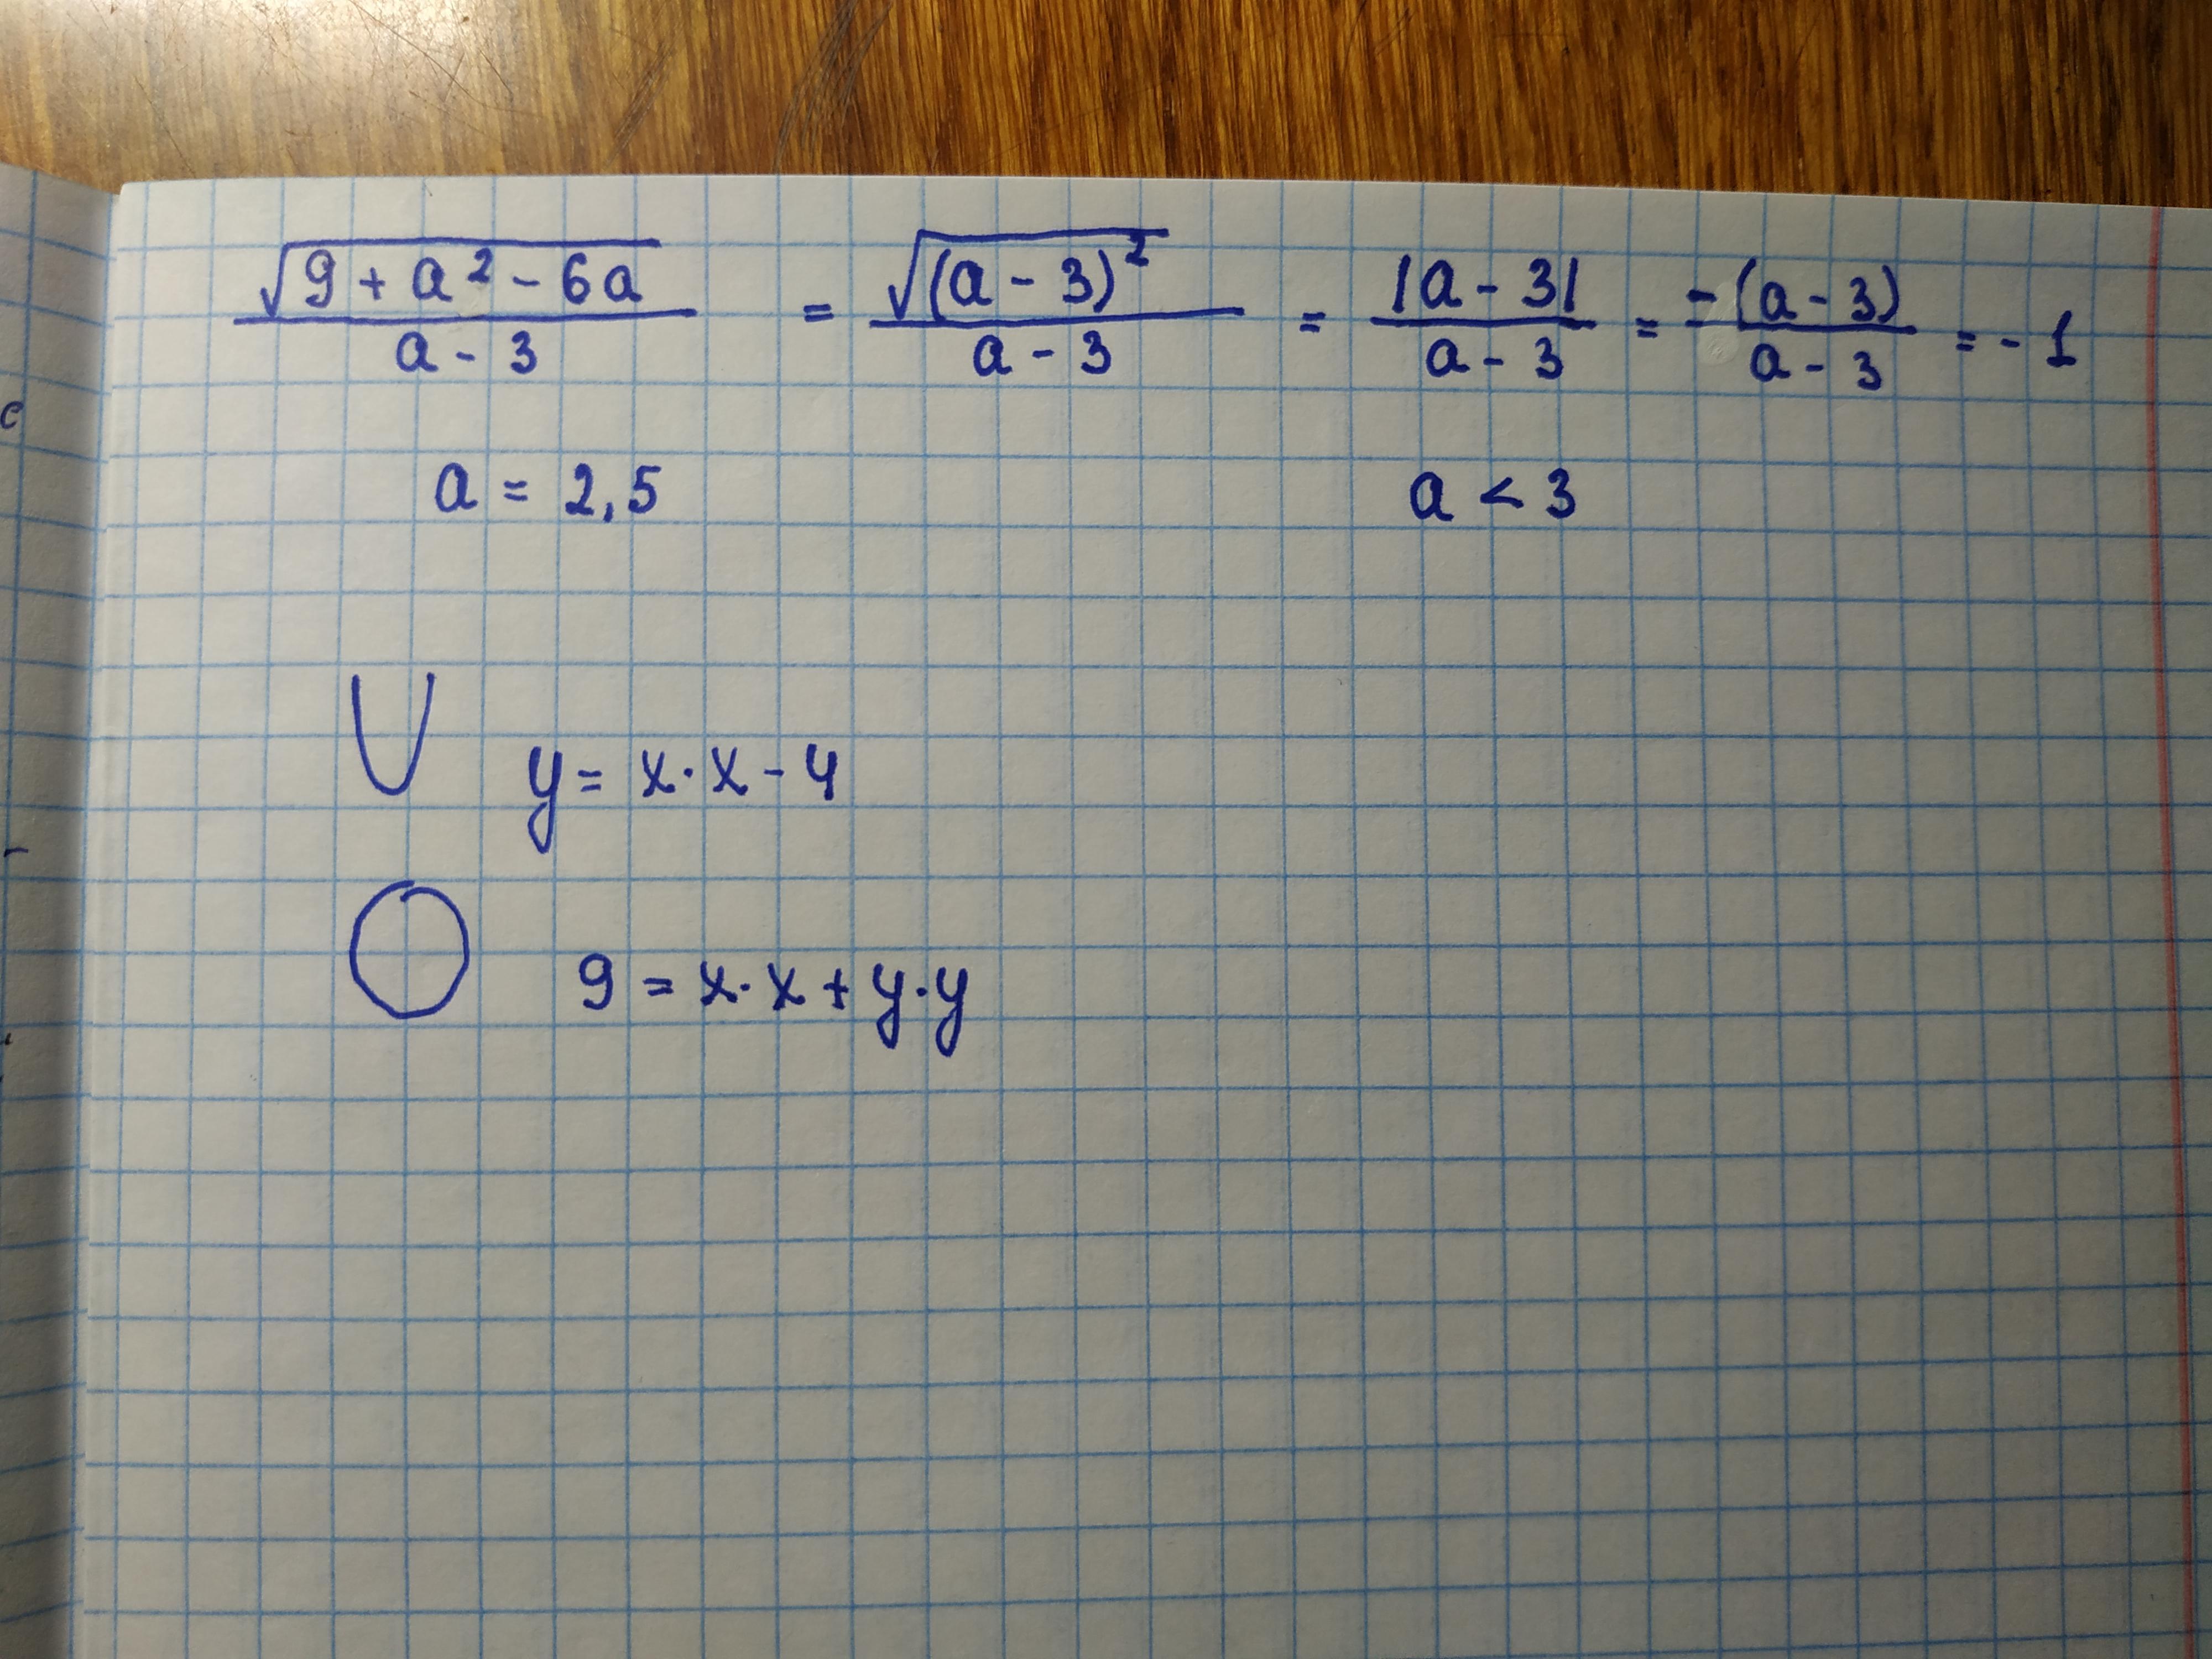 √(9 + a² - 6a) / (a - 3) = √((a - 3)²) / (a - 3) = |a - 3| / (a - 3) = -(a - 3) / (a - 3) = - 1
a = 2,5 a < 3
y = x · x - 4
9 = x · x + y · y